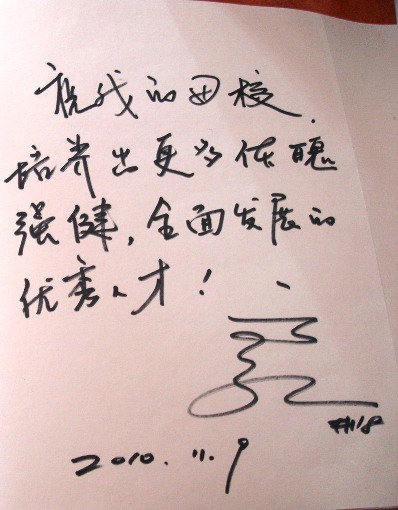 祝我的母校
培养出更多体魄
强健,全面发展的
优秀人才!
2010.11.9